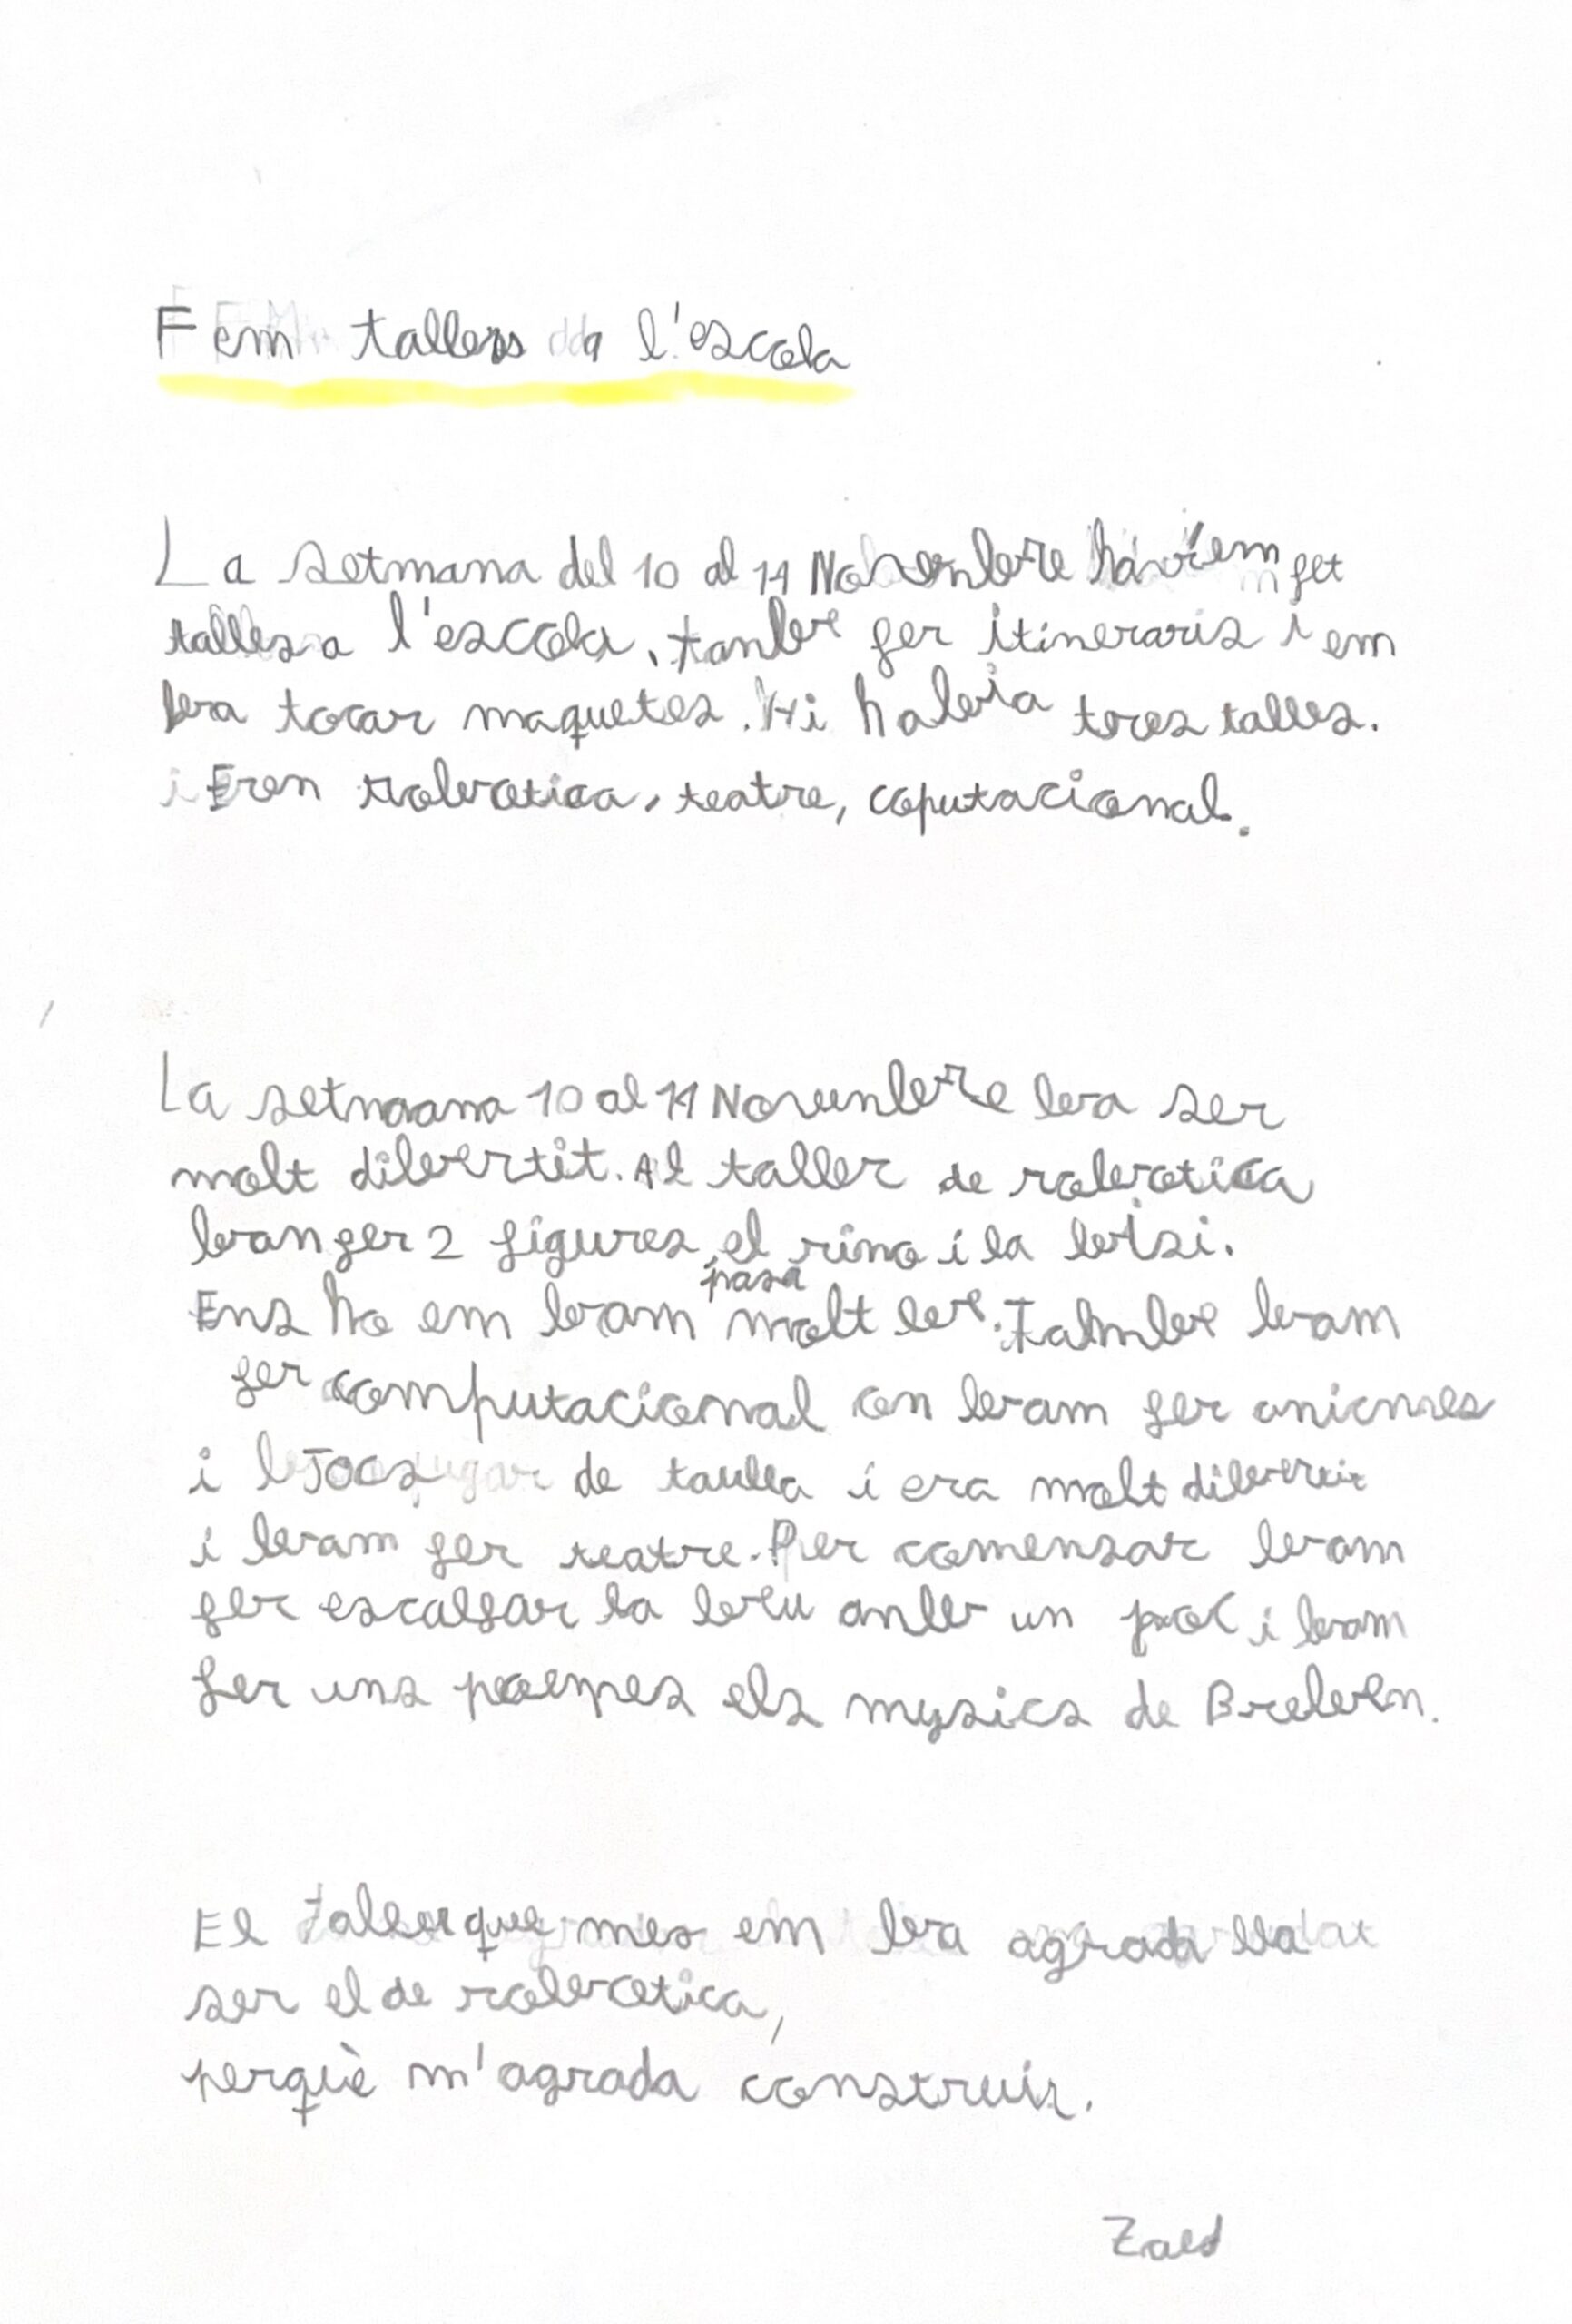 Fem tallers a l'escola
La setmana del 10 al 14 Novenbre havíem fet
talles a l'escola, tanbe fer itineraris i em
ba tocar maquetes. Hi habia tres talles.
i Eren robotica, teatre, coputacional.
La setmana 10 al 14 Novenbre ba ser
molt dibertit. Al taller de robotica
ban fer 2 figures, el rino i la
Ens ho em bam pasa molt be. Tambe bam
fer computacional on bam fer
i Jocs de taula i era molt dibertit
i bam fer teatre. Per comensar bam
fer escalfar la beu anb un poc i bam
fer uns poemes els mysics de Breben.
El taller que mes em ba agrada
ser el de robotica,
perquè m'agrada construir.